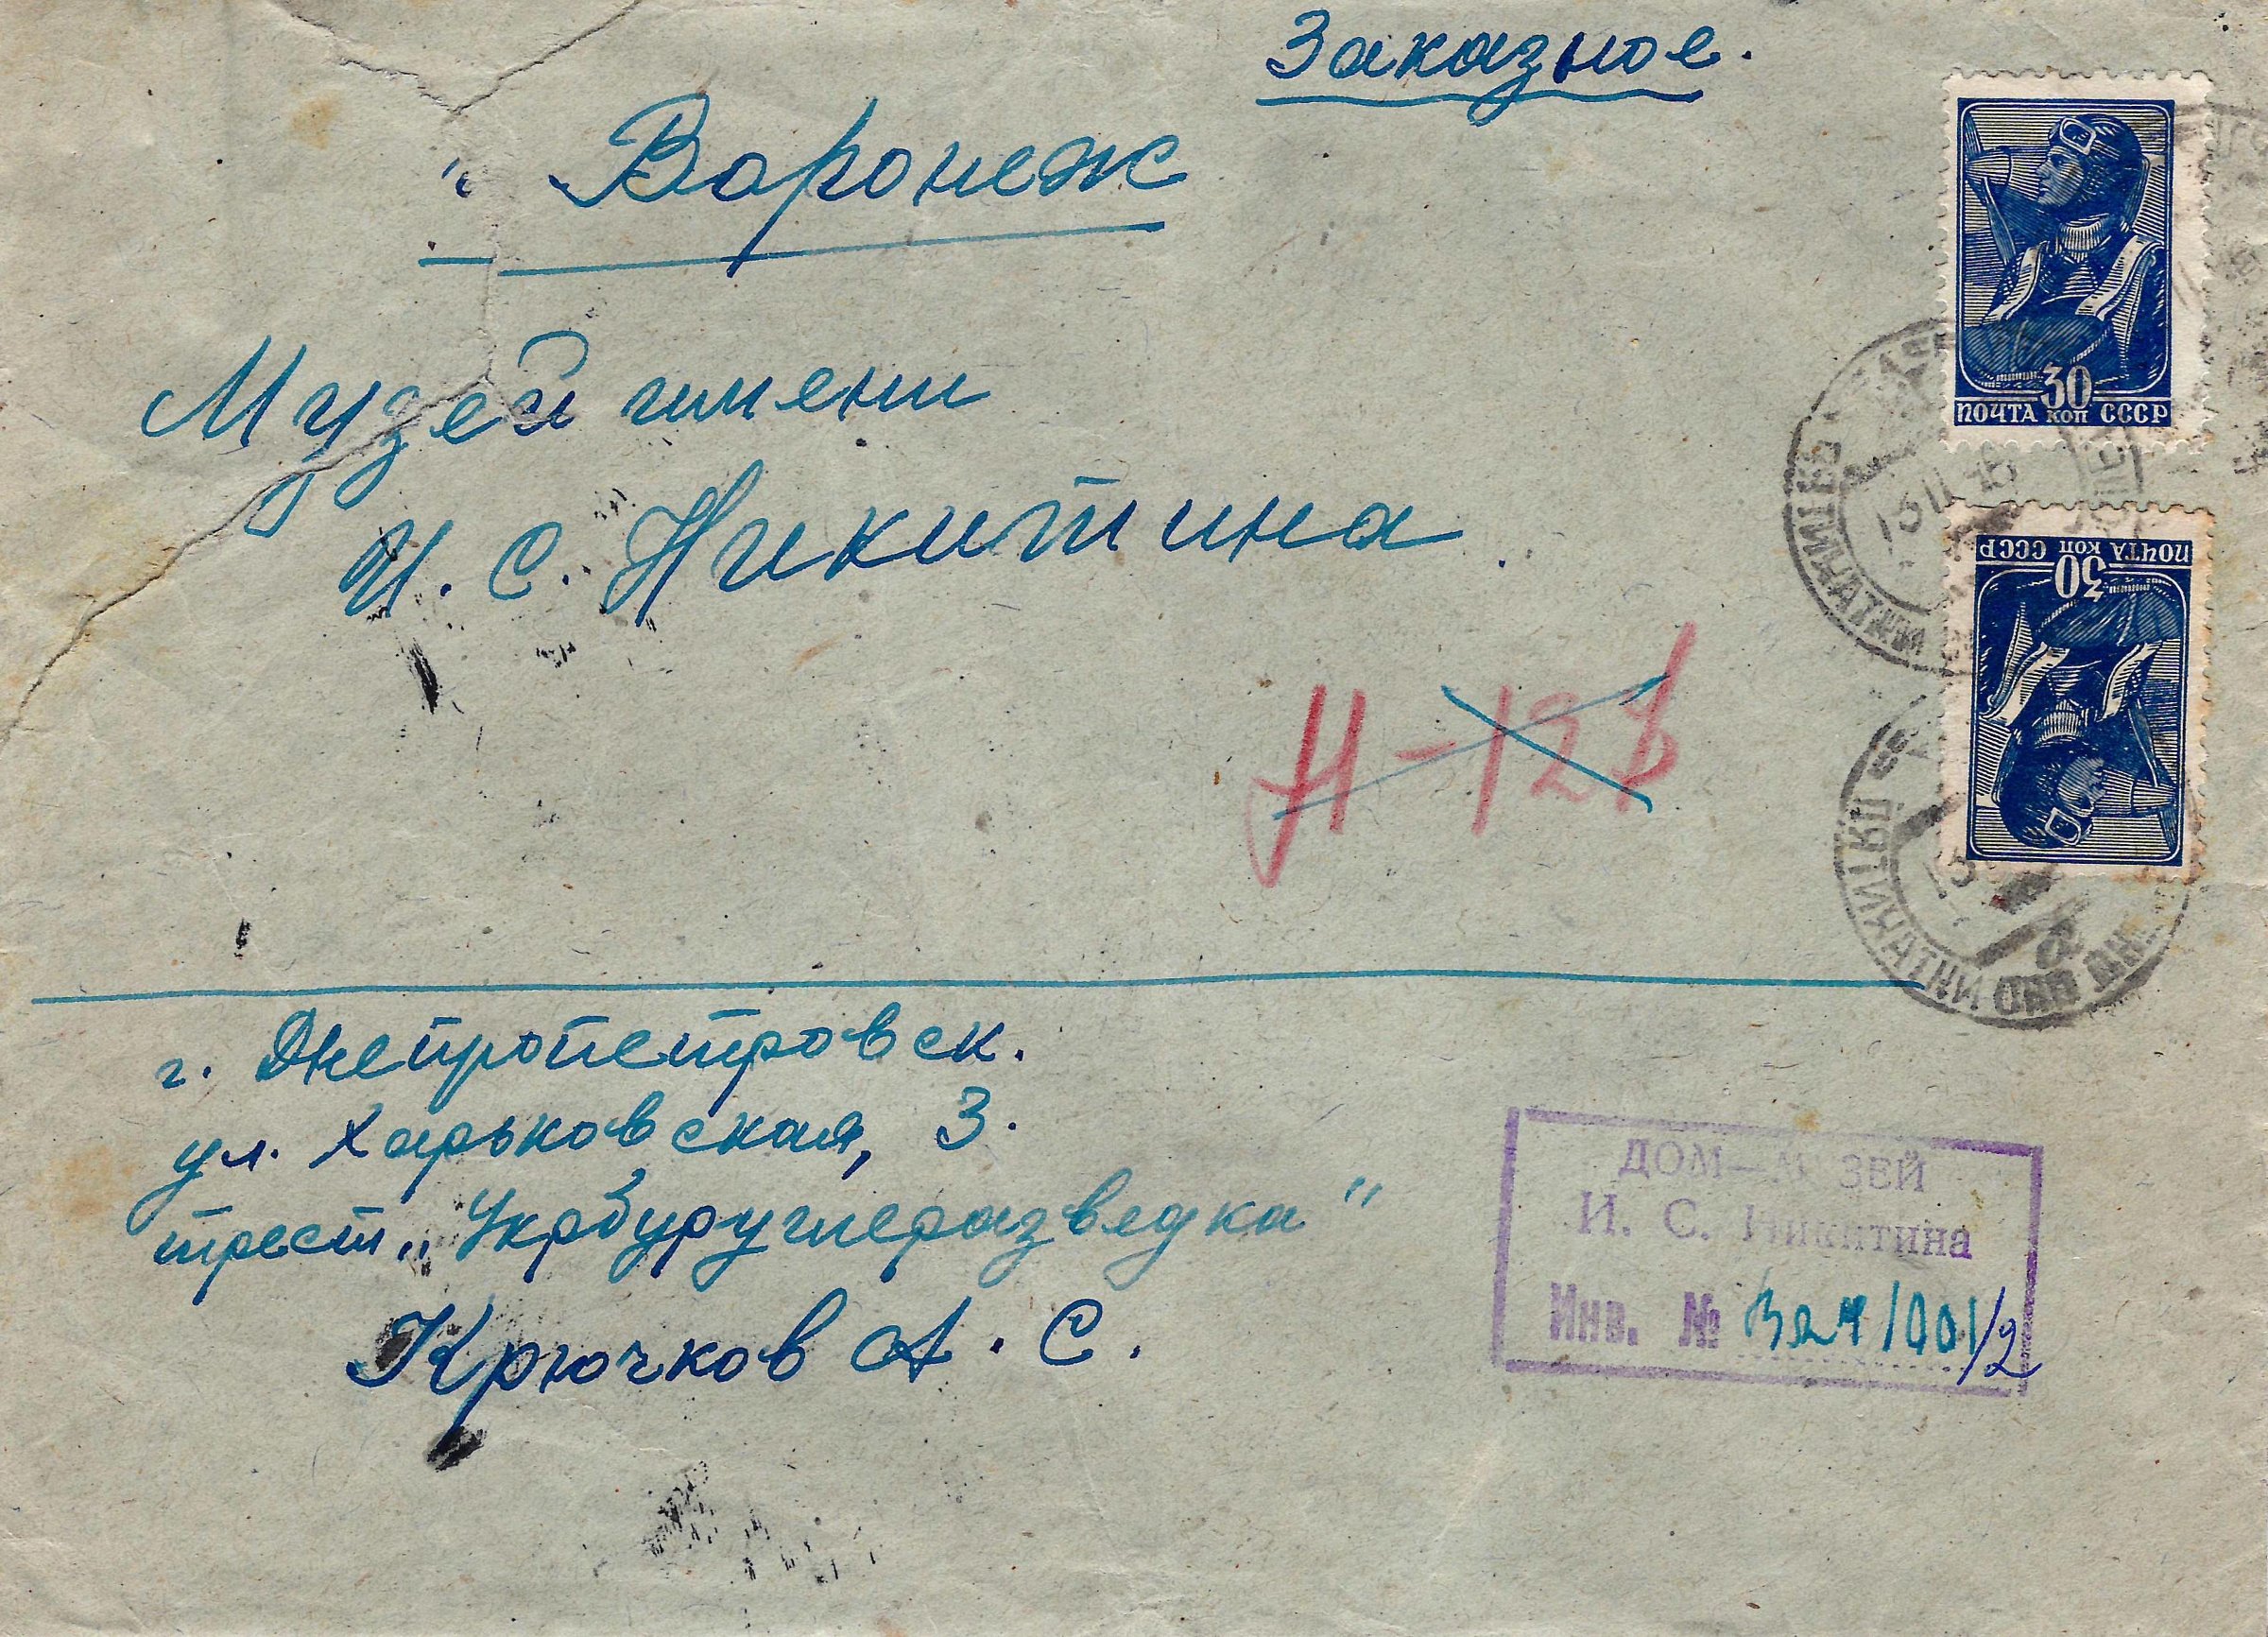 Заказное.
г. Воронеж
Музей имени
И. С. Никитина
Н-12
30
ПОЧТА КОП СССР
13 11
30
ПОЧТА КОП СССР
г. Днепропетровск.
ул. Харьковская, 3.
трест „Укрбуруглеразведка"
Крючков А. С.
ДОМ—МУЗЕЙ
И. С. Никитина
Инв. №